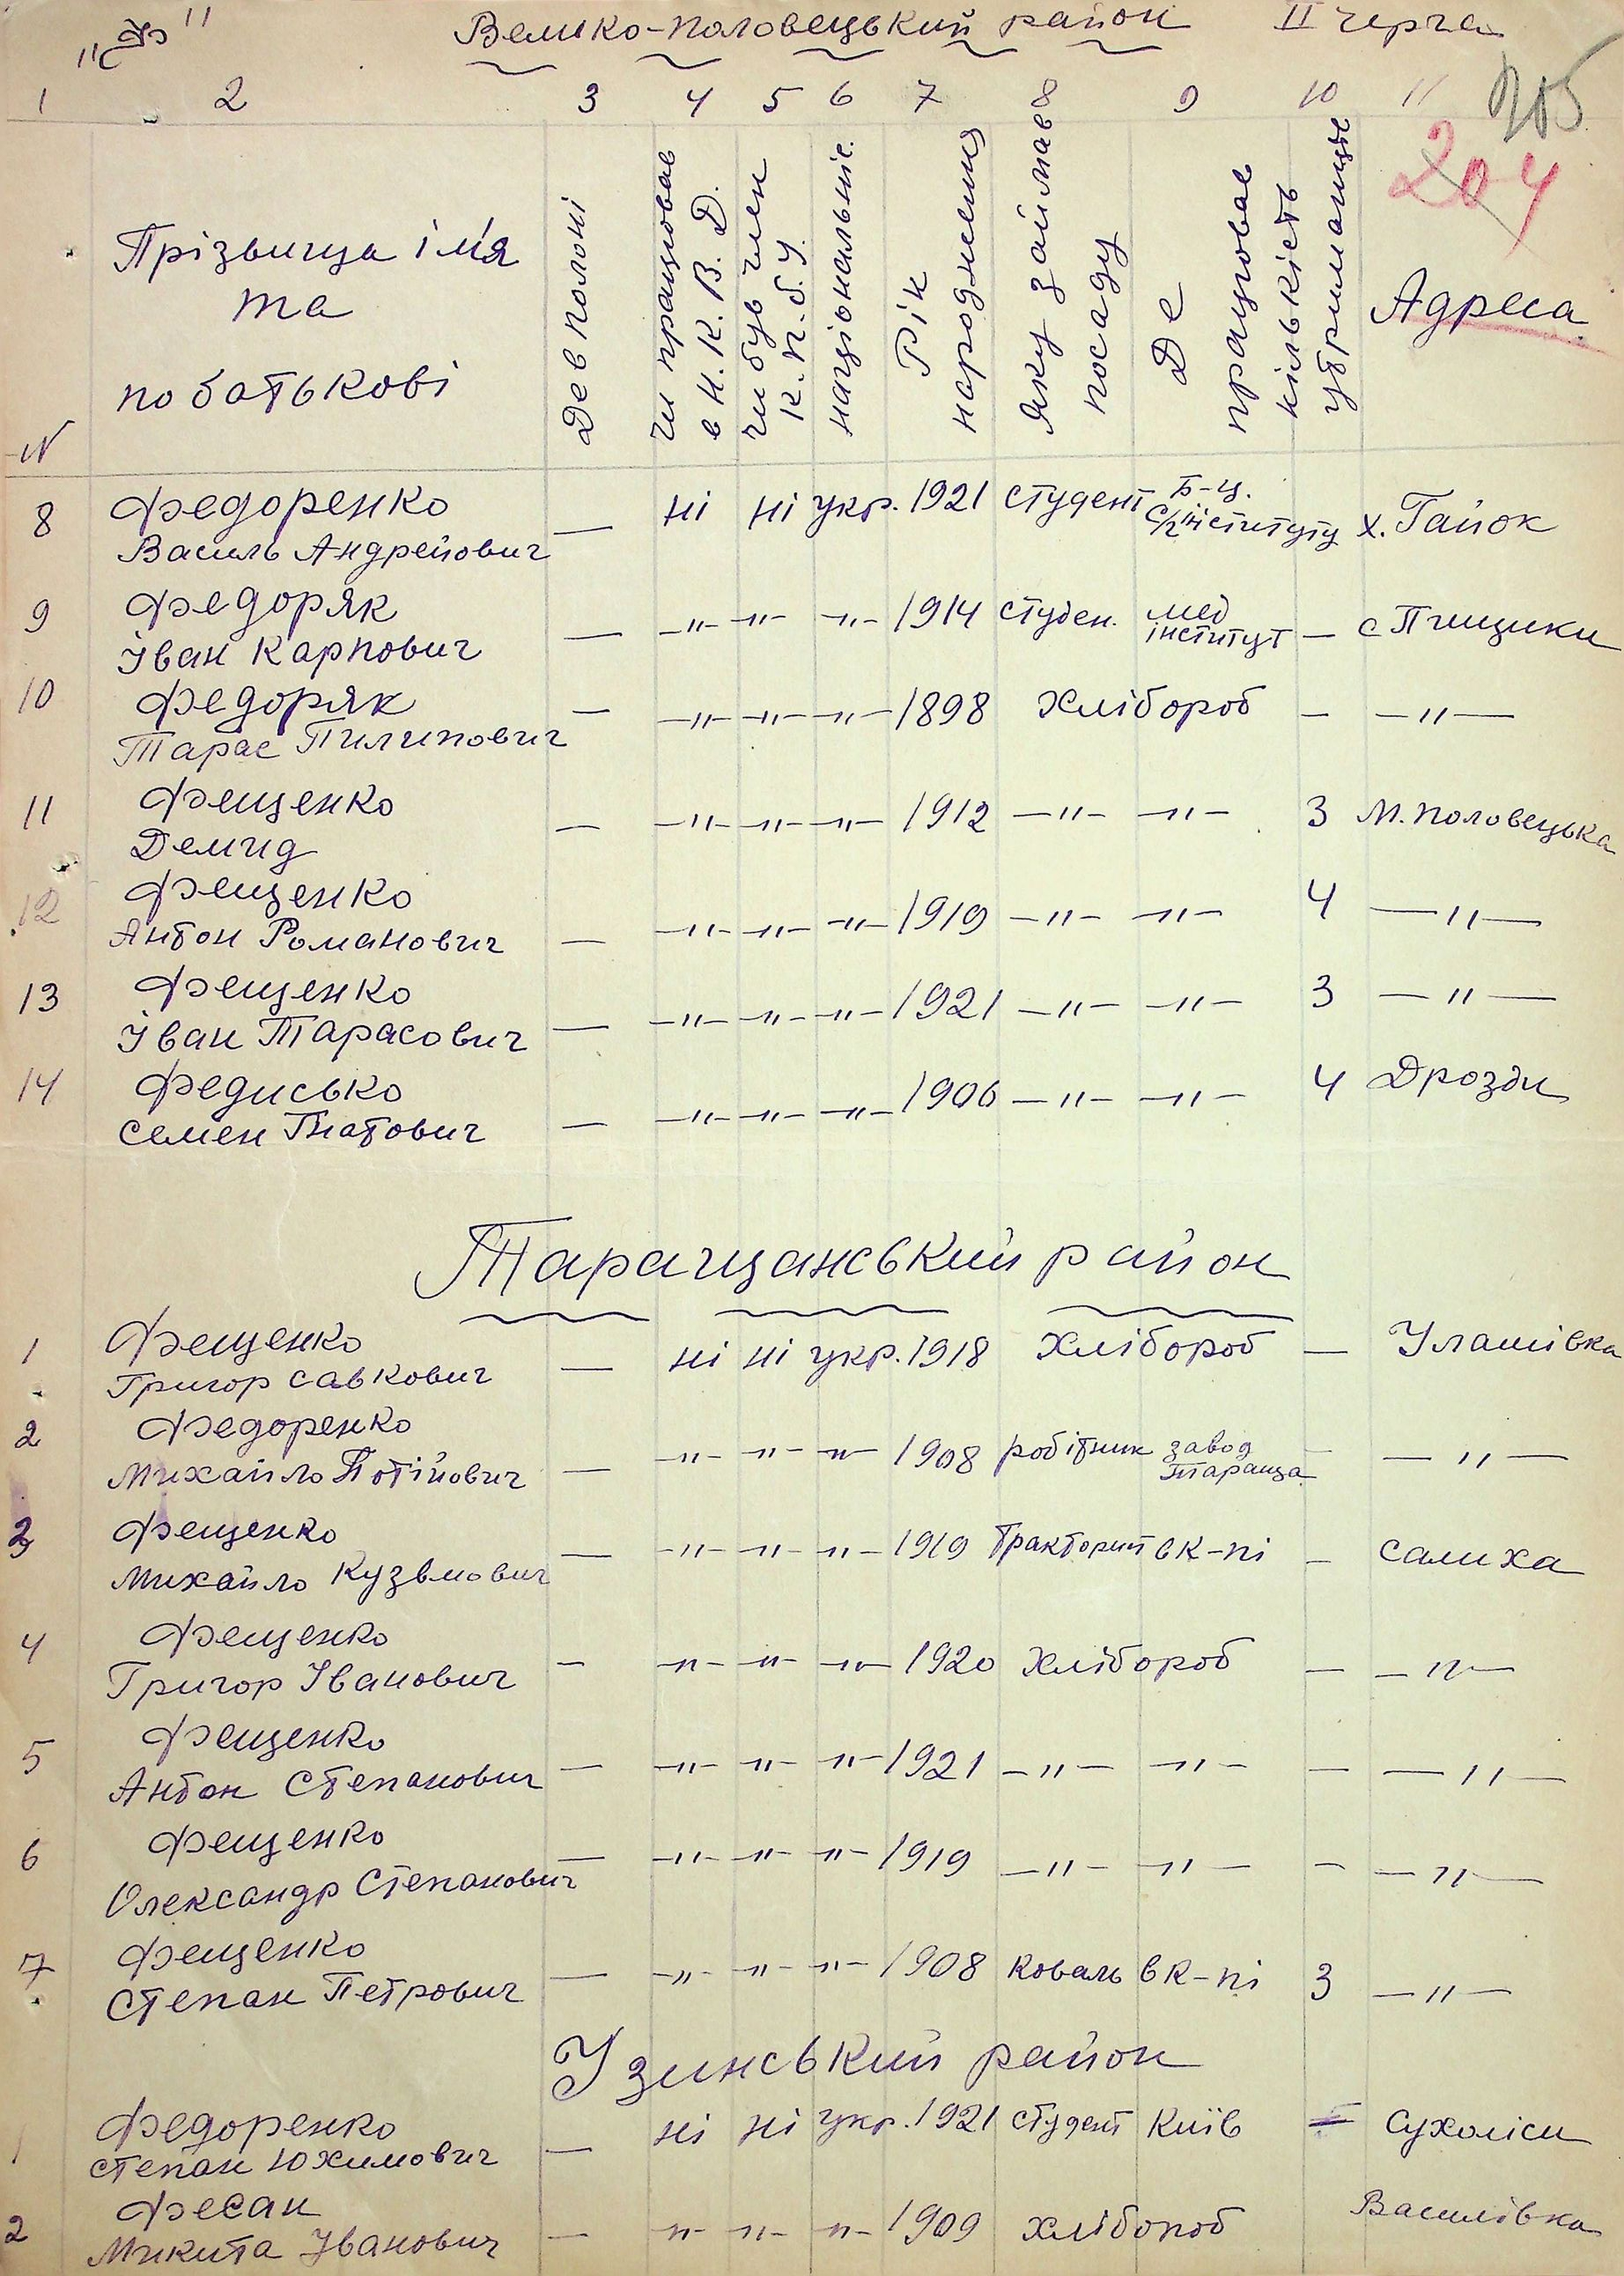 "Ф" Велико-половецький район II черга
1 2 3 4 5 6 7 8 9 10 11 205
204
N Прізвища ім'я та по батькові
Де в полоні
чи працював в Н.К.В.Д.
чи був член К.П.б.У.
національніс.
Рік народження
Яку займав посаду
Де працював
кількість утриманців
Адреса
8 Федоренко Василь Андрейович — ні ні укр. 1921 студент Б-ц. с/г інституту х. Гайок
9 Федоряк Іван Карпович — —"— —"— —"— 1914 студен. мед інститут — с Пищики
10 Федоряк Тарас Пилипович — —"— —"— —"— 1898 Хлібороб — —"—
11 Фещенко Демид — —"— —"— —"— 1912 —"— —"— 3 М. Половецька
12 Фещенко Антон Романович — —"— —"— —"— 1919 —"— —"— 4 —"—
13 Фещенко Іван Тарасович — —"— —"— —"— 1921 —"— —"— 3 —"—
14 Федисько Семен Гнатович — —"— —"— —"— 1906 —"— —"— 4 Дрозди
Таращанський район
1 Фещенко Григор Савкович — ні ні укр. 1918 Хлібороб — Улашівка
2 Федоренко Михайло Потійович — —"— —"— —"— 1908 робітник завод Тараща — —"—
3 Фещенко Михайло Кузьмович — —"— —"— —"— 1919 Тракторит в к-пі — Салиха
4 Фещенко Григор Іванович — —"— —"— —"— 1920 Хлібороб — —"—
5 Фещенко Антон Степанович — —"— —"— —"— 1921 —"— —"— — —"—
6 Фещенко Олександр Степанович — —"— —"— —"— 1919 —"— —"— — —"—
7 Фещенко Степан Петрович — —"— —"— —"— 1908 Коваль в к-пі 3 —"—
Узинський район
1 Федоренко Степан Юхимович — ні ні укр. 1921 студент Київ — Сухоліси
2 Фесан Микита Іванович — —"— —"— —"— 1909 хлібороб Василівка